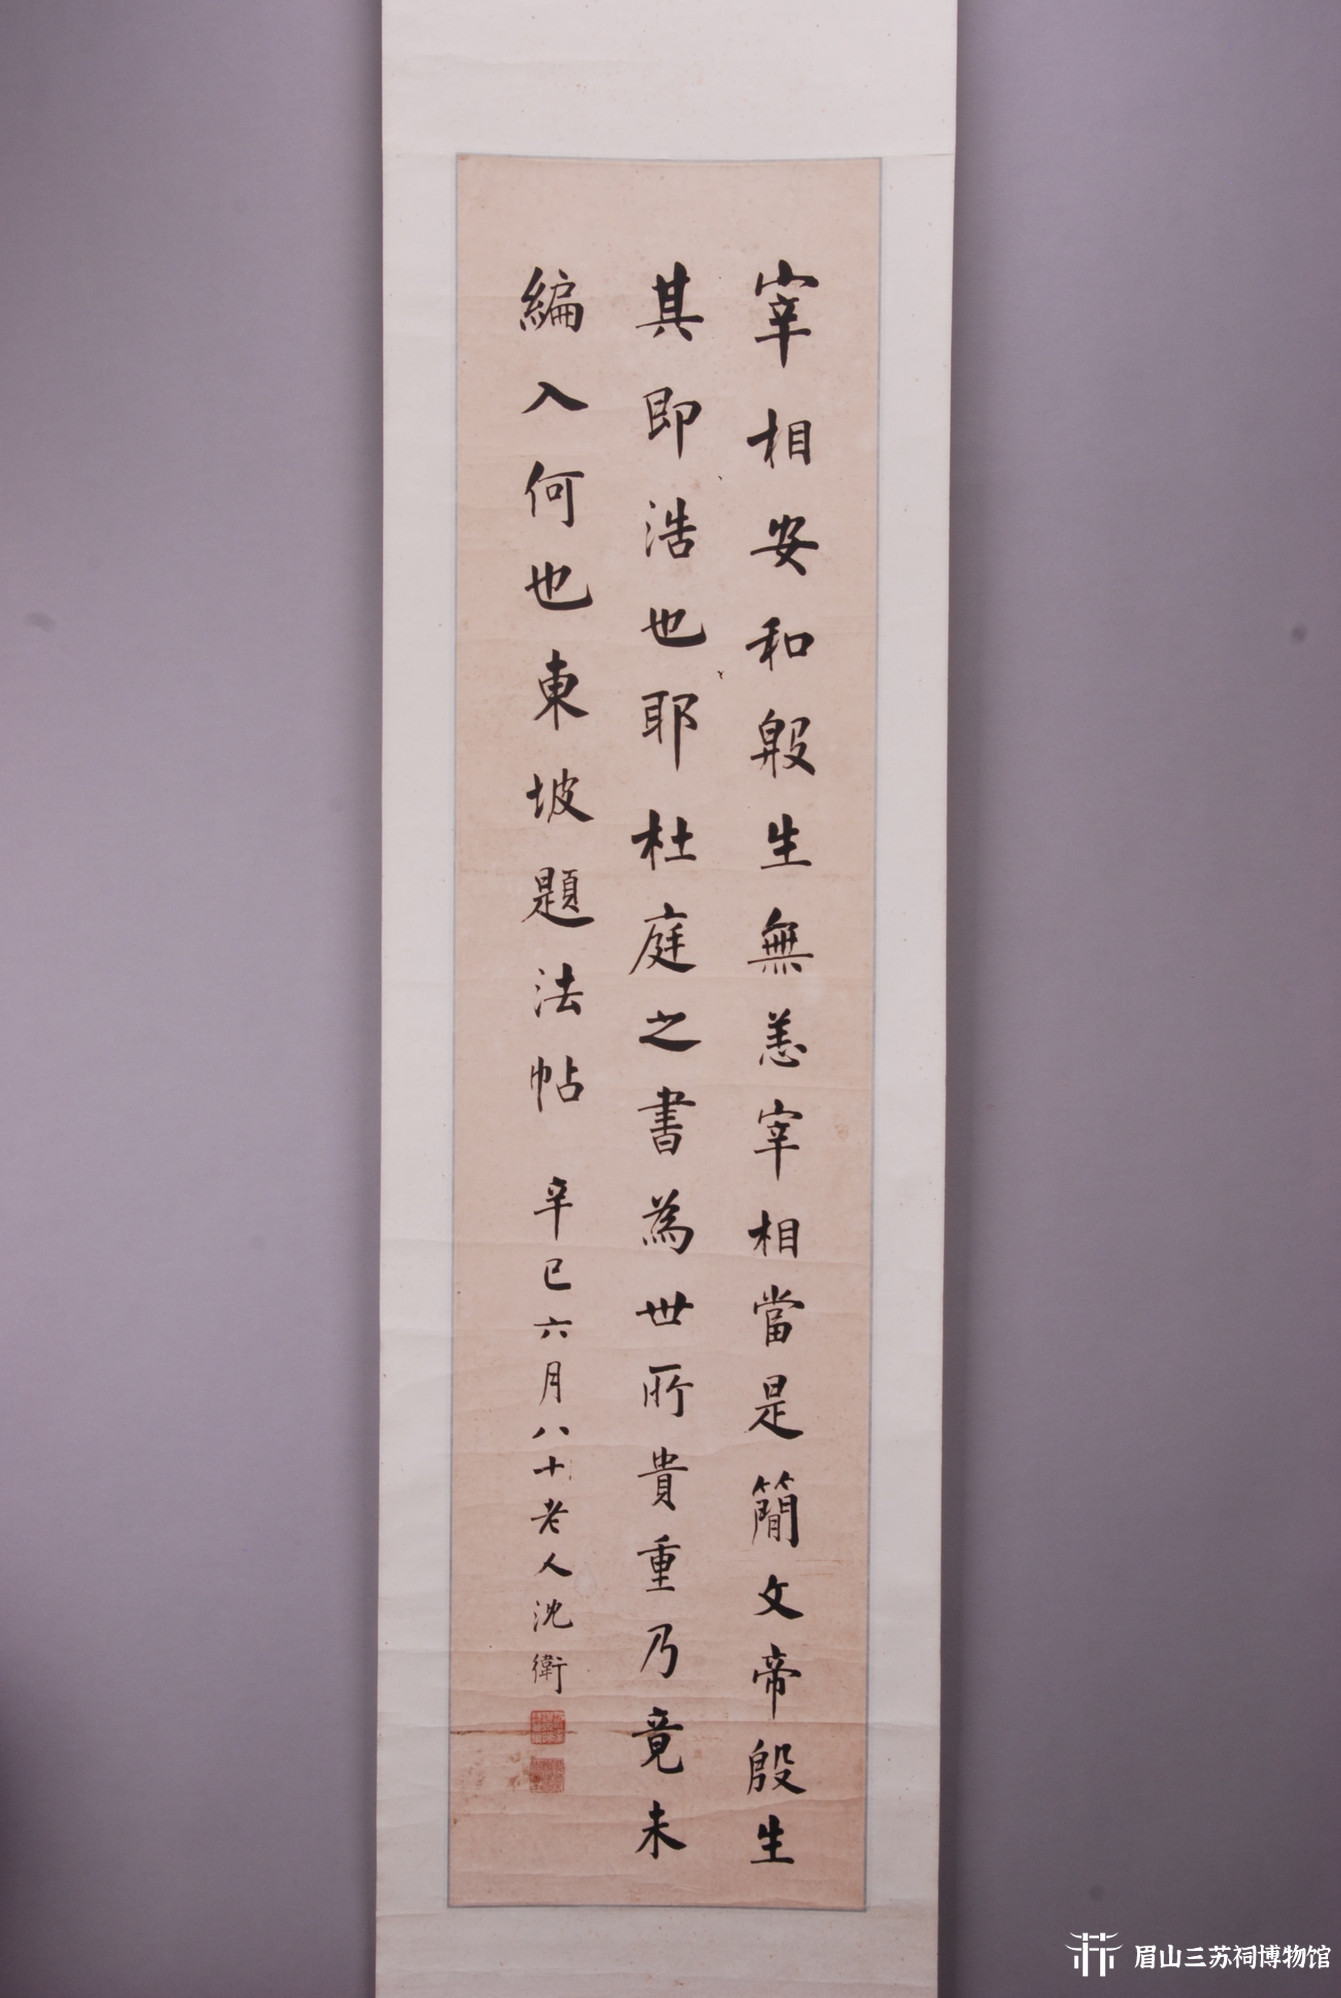 宰相安和殷生無恙宰相當是簡文帝殷生
其即浩也耶杜庭之書為世所貴重乃竟未
編入何也東坡題法帖
辛巳六月八十老人沈衛
眉山三苏祠博物馆